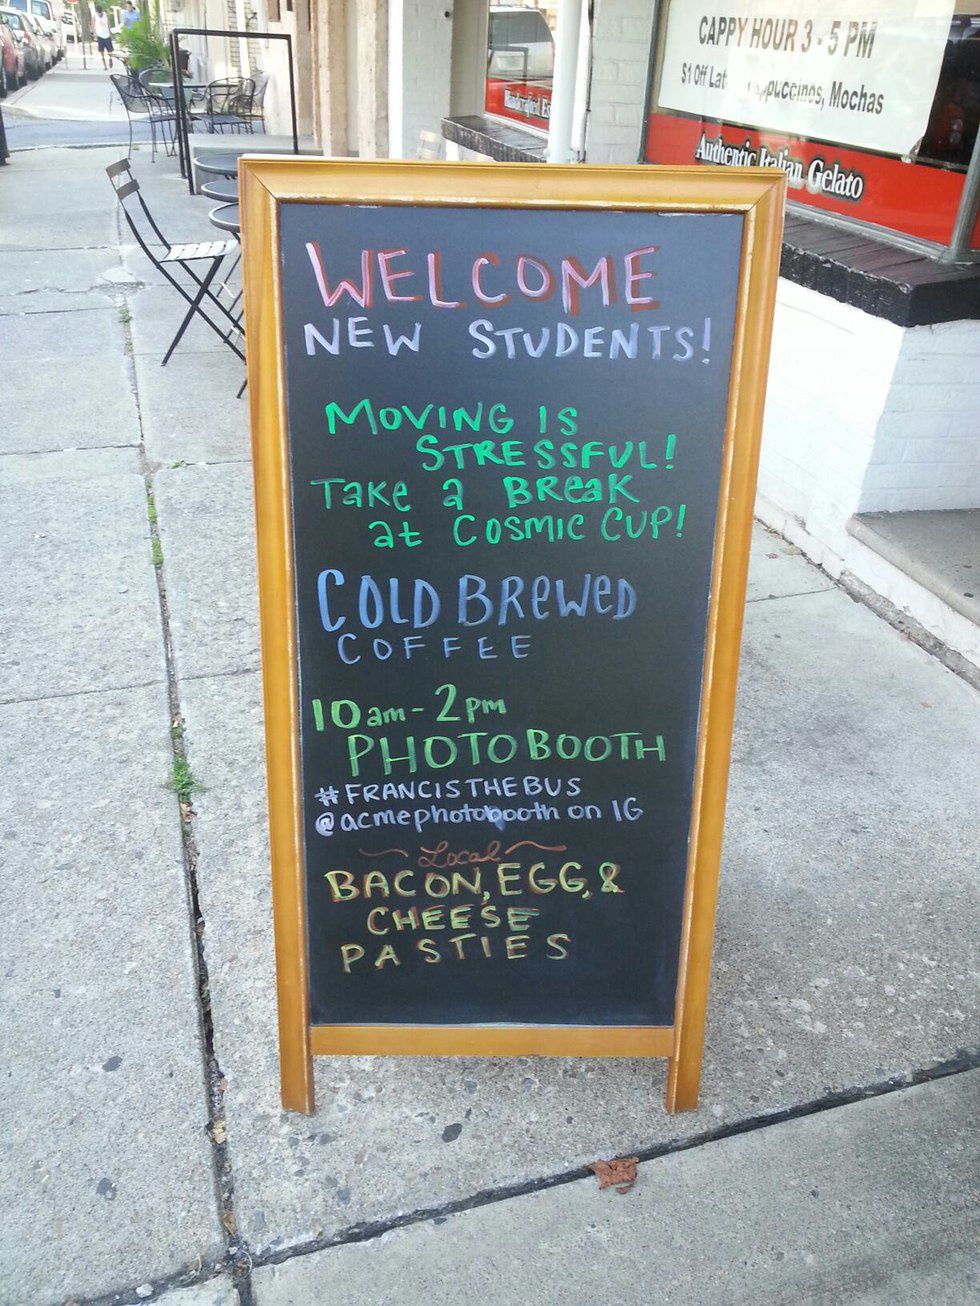 CAPPY HOUR 3 - 5 PM
$1 Off Mochas
Authentic Italian Gelato
WELCOME
NEW STUDENTS!
MOVING IS
STRESSFUL!
TAKE a BREAK
at COSMIC CUP!
COLD BREWED
COFFEE
10am - 2pm
PHOTOBOOTH
#FRANCISTHEBUS
@acmephotobooth on IG
Local
BACON, EGG, &
CHEESE
PASTIES